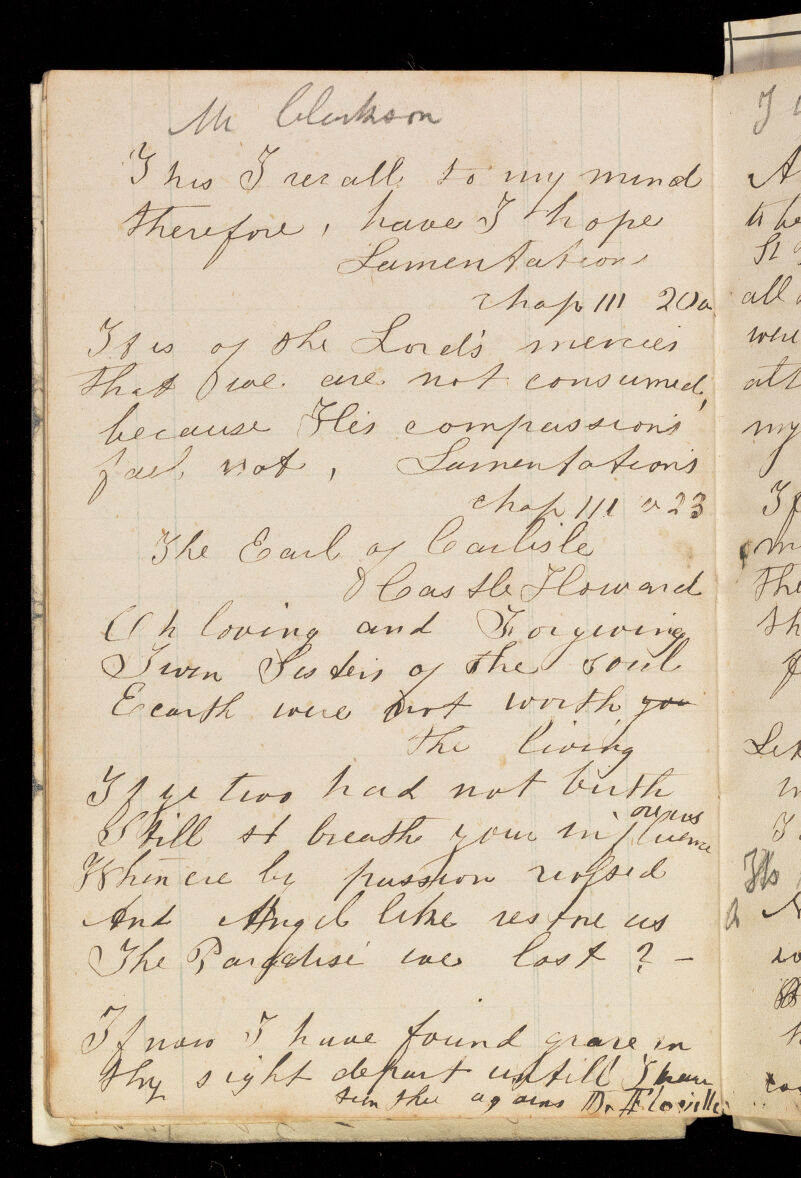 Mr Clarkson
This I recall to my mind
therefore, have I hope
Lamentations
chap III 20
It is of the Lord's mercies
that we are not consumed,
because His compassions
fail not, Lamentations
chap III v 23
The Earl of Carlisle
Castle Howard
Oh loving and Forgiving
Twin Sisters of the soul
Earth were not worth you
the living
If ye two had not birth
Still breath your influence
over us
Whene're by passion
And Angel like restore us
The Paradise we lost? –
If now I have found grace in
thy sight depart untill I have